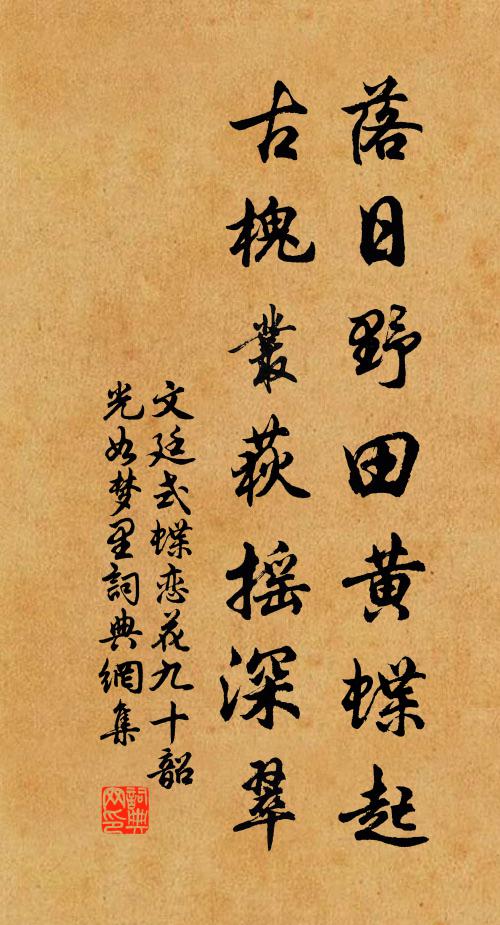 落日野田黄蝶起
古槐叢荻摇深翠
文廷式蝶恋花九十韶
光如梦里詞典網集
詞典網印